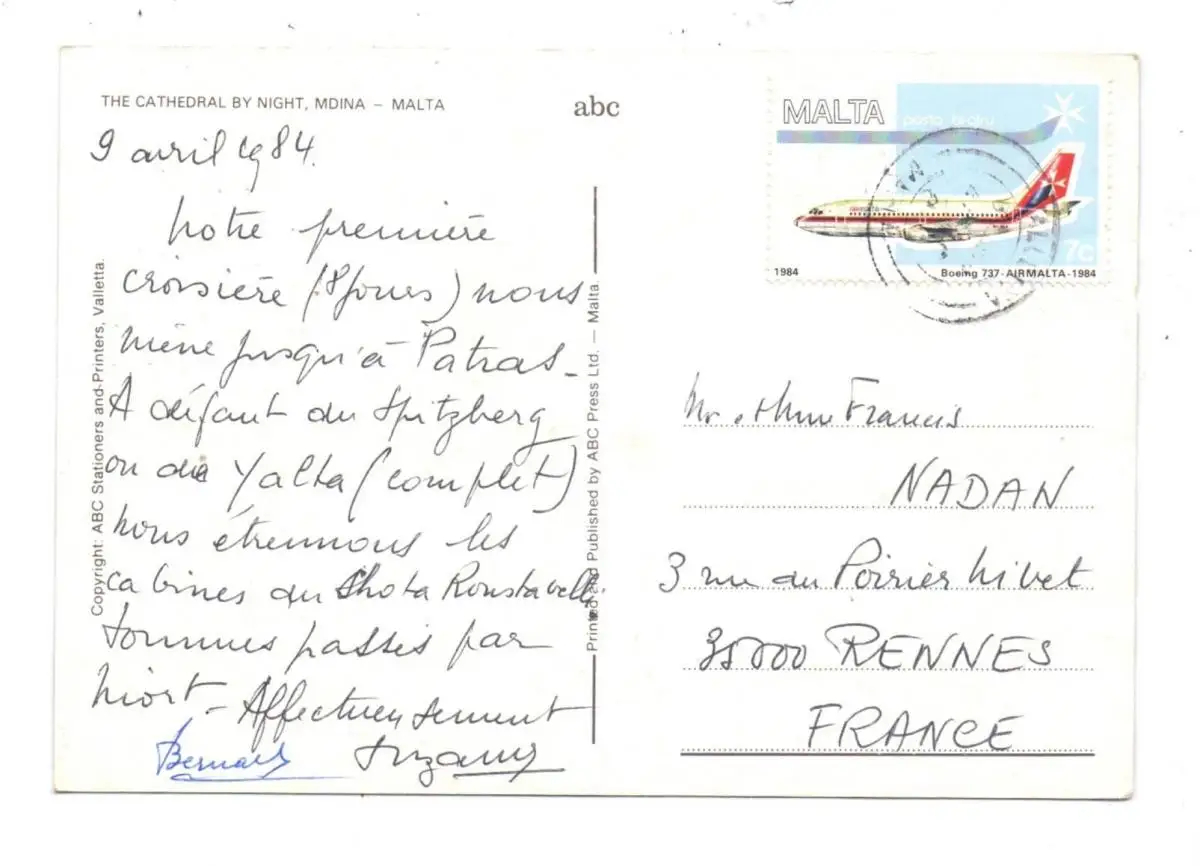 THE CATHEDRAL BY NIGHT, MDINA – MALTA
abc
9 avril 1984.
Notre première
croisière (18 jours) nous
mène jusqu'à Patras –
A défaut du Spitzberg
ou de Yalta (complet)
nous étrennons les
cabines du Shota Roustavelli.
Sommes passés par
Niort – Affectueusement
Bernard Suzanne
Copyright: ABC Stationers and Printers, Valletta.
Printed and Published by ABC Press Ltd. — Malta.
MALTA
posta bl-ajru
7c
1984
Boeing 737-AIRMALTA-1984
Mr et Mme Francis
NADAN
3 rue du Poirier Nivet
35000 RENNES
FRANCE